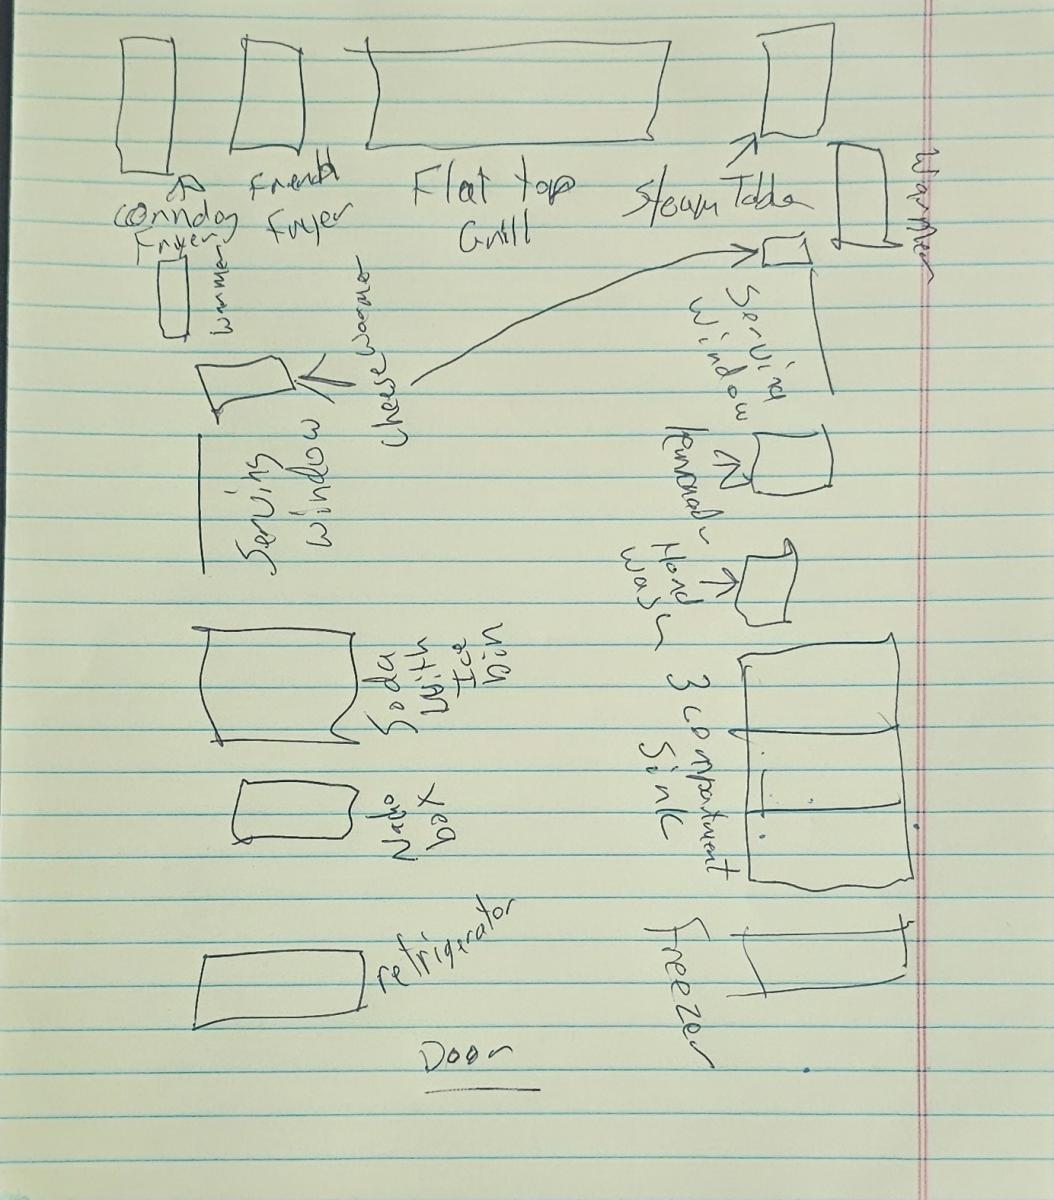 Corndog
Fryer
French
Fryer
Flat top
Grill
Steam Table
Warmer
Warmer
Cheese Warmer
Serving
Window
Serving
Window
Lemonade
Hand
Wash
Soda
With
Ice
Bin
3 compartment
Sink
Nacho
box
refrigerator
Freezer
Door